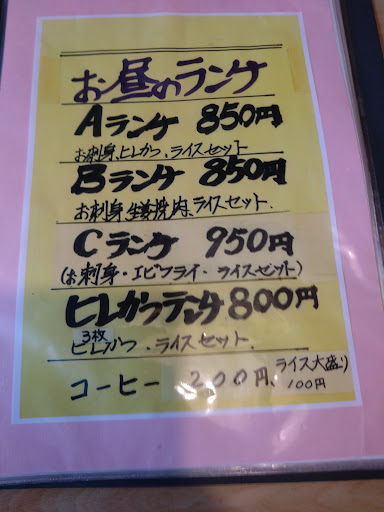 お昼のランチ
Aランチ 850円
お刺身、ヒレかつ、ライスセット
Bランチ 850円
お刺身、生姜焼肉、ライスセット
Cランチ 950円
(お刺身・エビフライ・ライスセット)
ヒレかつランチ 800円
3枚
ヒレかつ、ライスセット
コーヒー 200円 ライス大盛り
100円